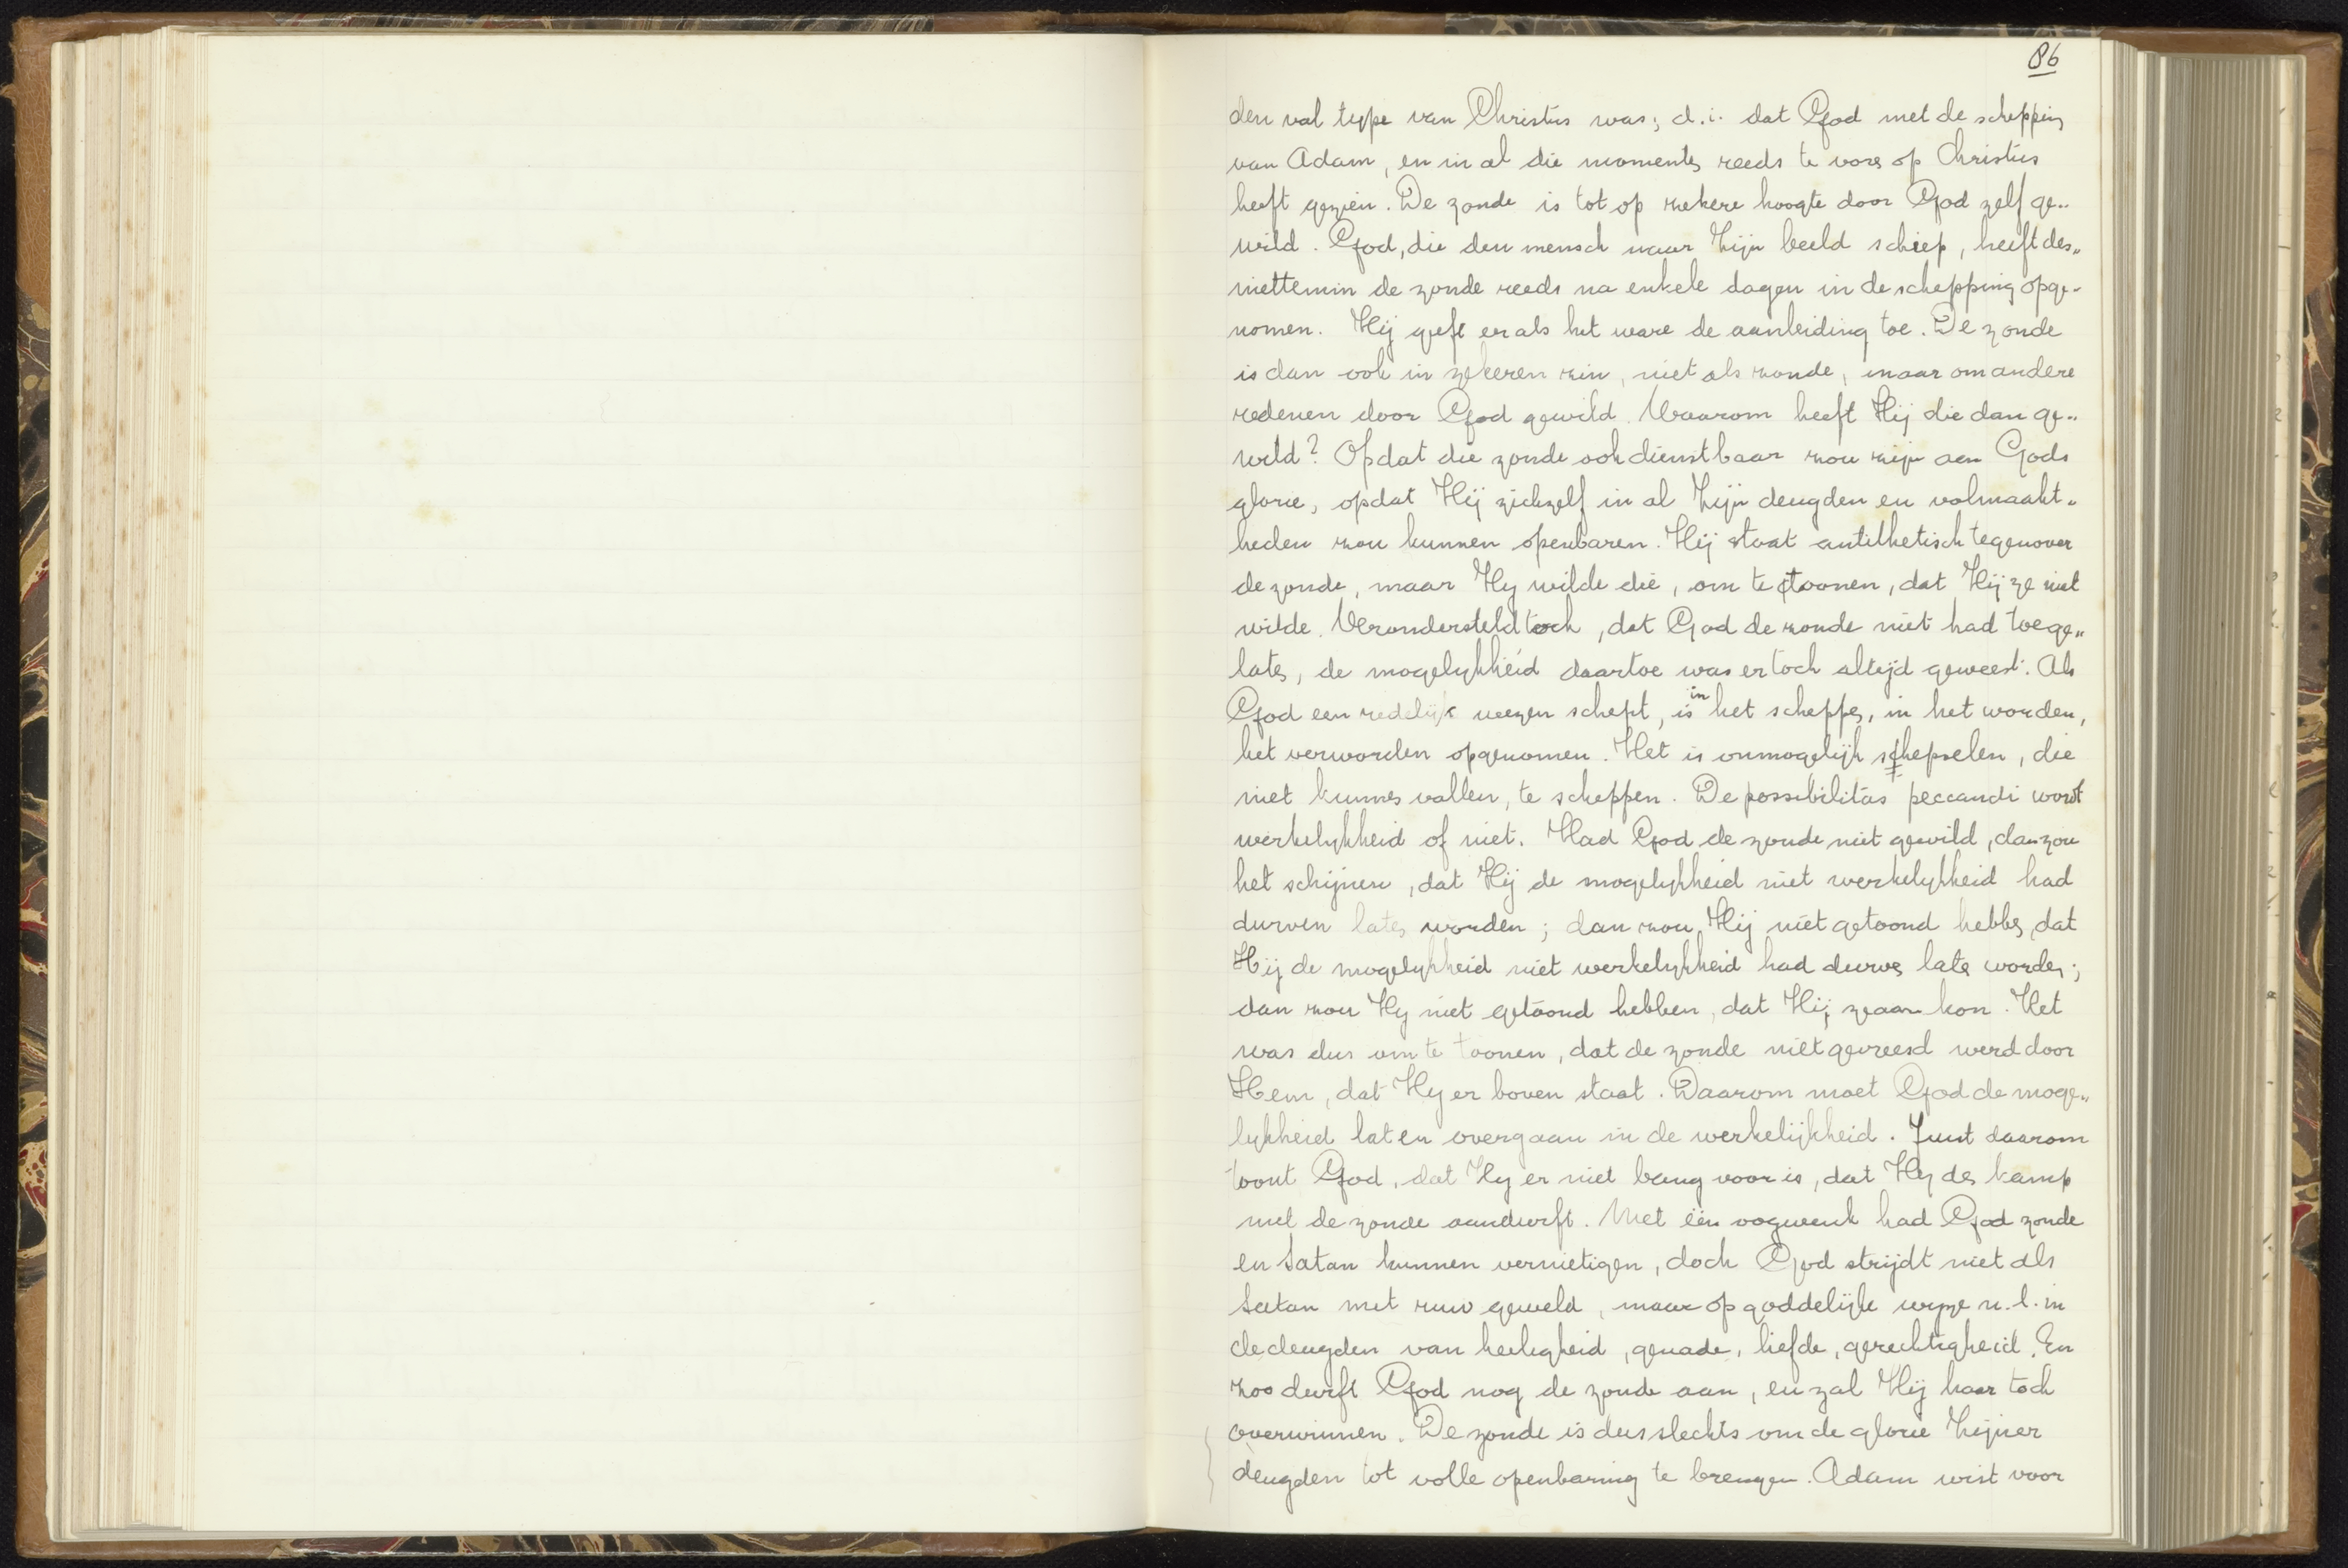 86
den val type van Christus was; d.i. dat God met de schepping
van Adam, en in al die momenten reeds te voren op Christus
heeft gezien. De zonde is tot op zekere hoogte door God zelf ge„
wild. God, die den mensch naar Zijn beeld schiep, heeft des„
niettemin de zonde reeds na enkele dagen in de schepping opge„
nomen. Hij geeft er als het ware de aanleiding toe. De zonde
is dan ook in zekeren zin, niet als zonde, maar om andere
redenen door God gewild. Waarom heeft Hij die dan ge„
wild? Opdat die zonde ook dienstbaar zou zijn aan Gods
glorie, opdat Hij zichzelf in al Zijn deugden en volmaakt„
heden zou kunnen openbaren. Hij staat antithetisch tegenover
de zonde, maar Hij wilde die, om te toonen, dat Hij ze niet
wilde. Verondersteld toch, dat God de zonde niet had toege„
laten, de mogelijkheid daartoe was er toch altijd geweest. Als
God een redelijk wezen schept, is in het scheppen, in het worden,
het verworden opgenomen. Het is onmogelijk schepselen, die
niet kunnen vallen, te scheppen. De possibilitas peccandi wordt
werkelijkheid of niet. Had God de zonde niet gewild, dan zou
het schijnen, dat Hij de mogelijkheid niet werkelijkheid had
durven laten worden; dan zou Hij niet getoond hebben, dat
Hij de mogelijkheid niet werkelijkheid had durven laten worden;
dan zou Hij niet getoond hebben, dat Hij ze aan kon. Het
was dus om te toonen, dat de zonde niet gevreesd werd door
Hem, dat Hij er boven staat. Daarom moet God de moge„
lijkheid laten overgaan in de werkelijkheid. Juist daarom
toont God, dat Hij er niet bang voor is, dat Hij den kamp
met de zonde aandurft. Met één oogwenk had God zonde
en Satan kunnen vernietigen, doch God strijdt niet als
Satan met ruw geweld, maar op goddelijke wijze n.l. in
de deugden van heiligheid, genade, liefde, gerechtigheid. En
zoo durft God nog de zonde aan, en zal Hij haar toch
overwinnen. De zonde is dus slechts om de glorie Zijner
deugden tot volle openbaring te brengen. Adam wist voor